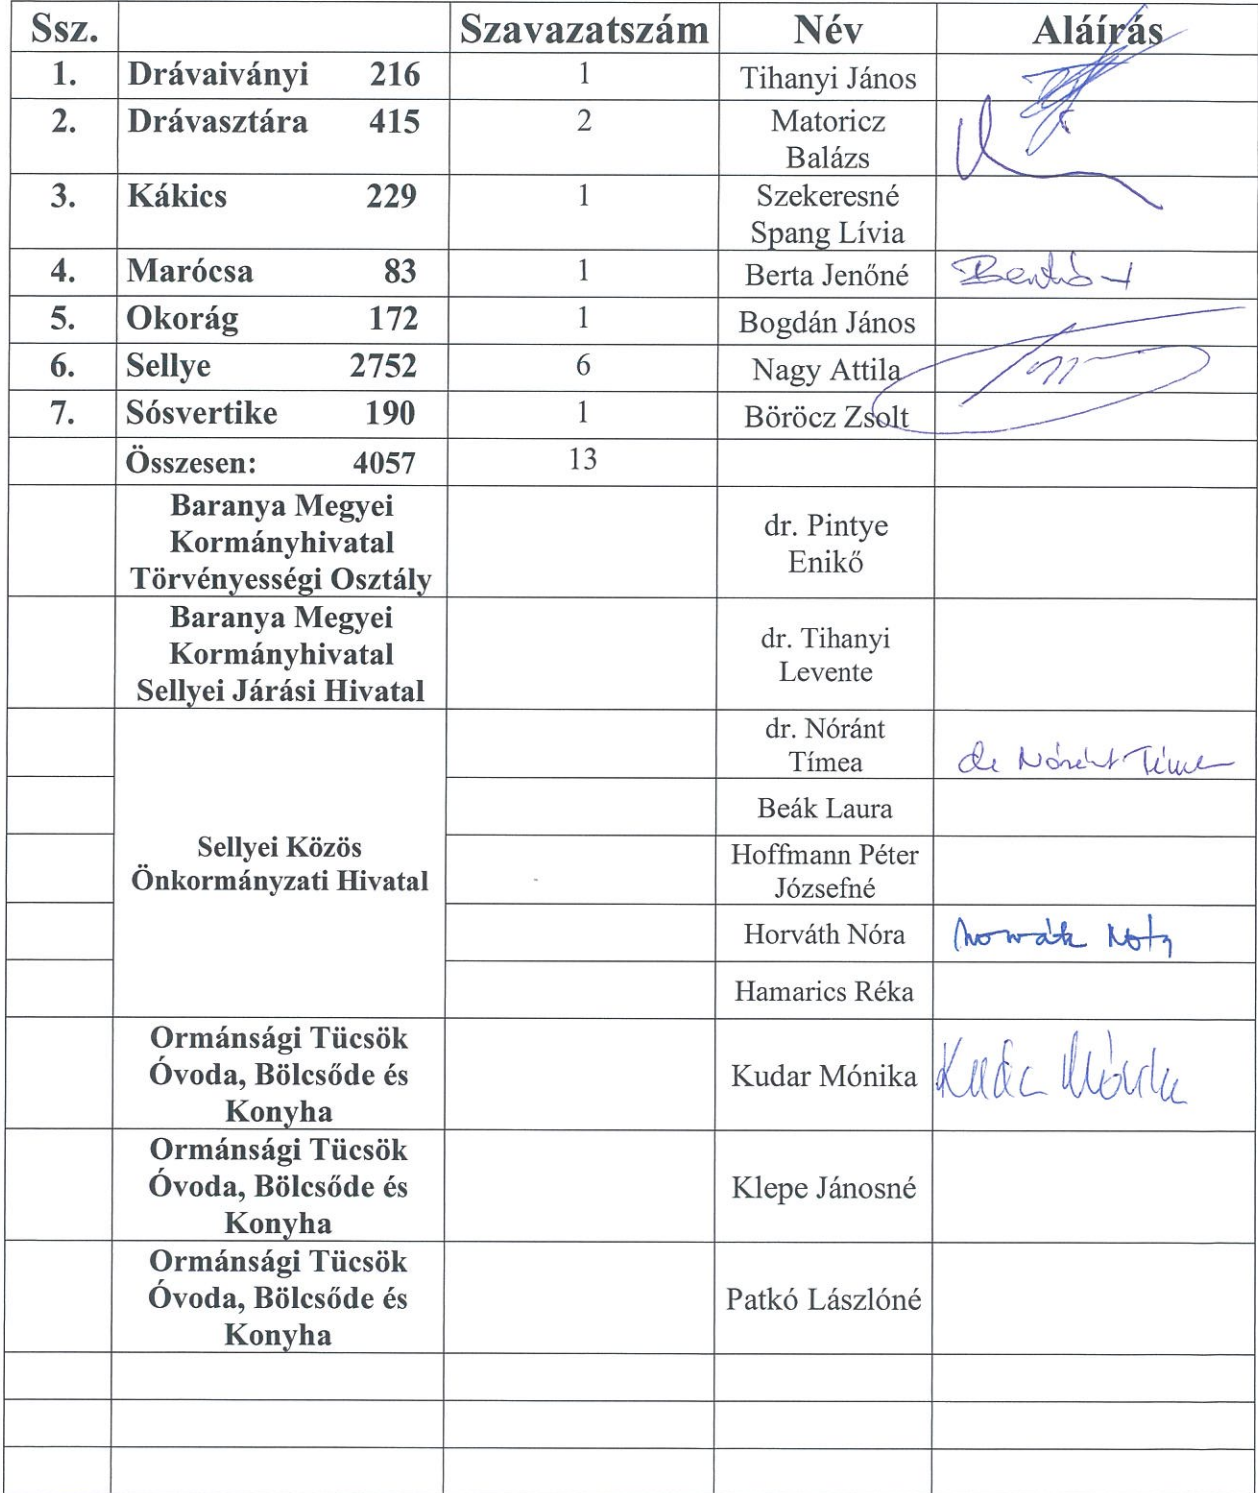 Ssz. Szavazatszám Név Aláírás
1. Drávaiványi 216 1 Tihanyi János
2. Drávasztára 415 2 Matoricz
Balázs
3. Kákics 229 1 Szekeresné
Spang Lívia
4. Marócsa 83 1 Berta Jenőné
5. Okorág 172 1 Bogdán János
6. Sellye 2752 6 Nagy Attila
7. Sósvertike 190 1 Böröcz Zsolt
Összesen: 4057 13
Baranya Megyei
Kormányhivatal
Törvényességi Osztály
dr. Pintye
Enikő
Baranya Megyei
Kormányhivatal
Sellyei Járási Hivatal
dr. Tihanyi
Levente
Sellyei Közös
Önkormányzati Hivatal
dr. Nóránt
Tímea
dr Nóránt Tímea
Beák Laura
Hoffmann Péter
Józsefné
Horváth Nóra
Hamarics Réka
Ormánsági Tücsök
Óvoda, Bölcsőde és
Konyha
Kudar Mónika Kudar Mónika
Ormánsági Tücsök
Óvoda, Bölcsőde és
Konyha
Klepe Jánosné
Ormánsági Tücsök
Óvoda, Bölcsőde és
Konyha
Patkó Lászlóné